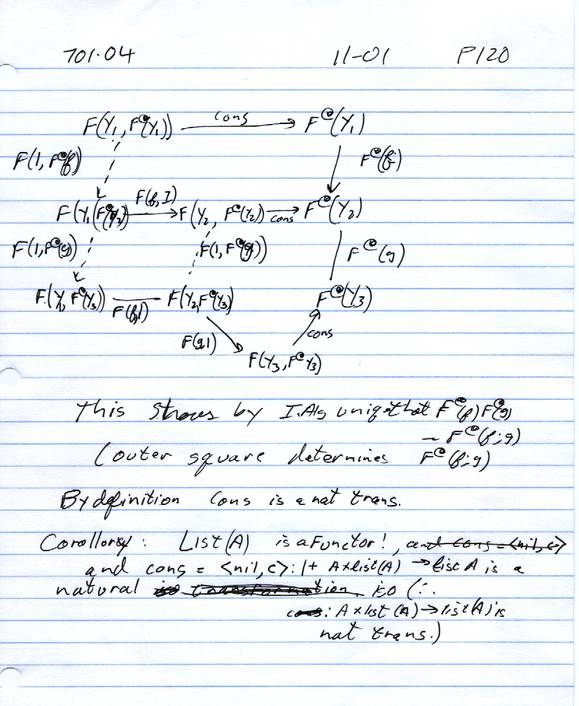 701.04 11-01 P120
F(Y₁, F^@(Y₁)) cons F^@(Y₁)
F(1, F^@f) F^@(f)
F(Y₁, F^@Y₂) F(f, 1) F(Y₂, F^@(Y₂)) cons F^@(Y₂)
F(1, F^@(g)) F(1, F^@(g)) F^@(g)
F(Y₁, F^@Y₃) F(f,1) F(Y₂, F^@Y₃) F^@(Y₃)
F(g,1) cons
F(Y₃, F^@Y₃)
This shows by I.Alg uniq that F^@(f) F^@(g)
= F^@(f;g)
(outer square determines F^@(f;g)
By definition cons is a nat trans.
Corollory: List(A) is a Functor!, and cons = <nil, c>
and cons = <nil, c>: 1 + A×list(A) → list A is a
natural iso (∵
cons: A × list(A) → list(A) is
nat trans.)